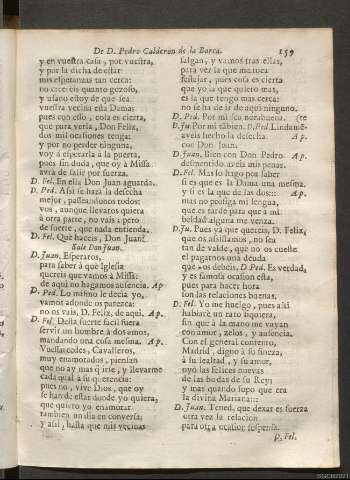 De D. Pedro Calderon de la Barca. 159
y en vuestra casa, por vuestra,
y por la dicha de estar
mis esperanzas tan cerca:
no creereis quanto gozoso,
y ufano estoy de que sea
vuestra vecina esta Dama;
pues con esso, cosa es cierta,
que para verla, Don Felix,
dos mil ocasiones tenga:
y por no perder ninguna,
voy à esperarla à la puerta,
pues sin duda, que oy à Missa
avrà de salir por fuerza.
D. Fel. En ella Don Juan aguarda.
D. Ped. Assi se hará la desecha
mejor, passeandonos todos:
vos, aunque llevaros quiera
à otra parte, no vais; pero
de suerte, que nada entienda.
D. Fel. Què haceis, Don Juan?
Sale Don Juan.
D. Juan. Esperaros,
para saber à què Iglesia
quereis que vamos à Missa:
de aqui no hagamos ausencia. Ap.
D. Ped. Lo mismo le decia yo,
vamos adonde os parezca:
no os vais, D. Felix, de aqui. Ap.
D. Fel. Desta suerte facil fuera
servir un hombre à dos amos,
mandando una cosa mesma. Ap.
Vuessarcedes, Cavalleros,
muy enamorados, piensan
que no ay mas q irse, y llevarme
cada qual à su querencia:
pues no, vive Dios, que oy
se han de estar donde yo quiera,
que quiero yo enamorar
tambien un dia en conversa;
y assi, hasta que mis vecinas
salgan, y vamos tras ellas,
para vèr la que me toca
festejar, pues cosa es cierta
que yo la que quiero mas,
es la que tengo mas cerca:
no se ha de ir de aqui ninguno.
D. Ped. Por mi sea norabuena. (te
D. Ju. Por mi tãbien. D. Fel. Lindamẽ-
aveis hecho la desecha Ap.
con Don Juan.
D. Juan. Bien con Don Pedro Ap.
desmentido aveis mis penas.
D. Fel. Mas lo hago por saber
si es que es la Dama una mesma,
y si es la que de las dos::: Ap.
mas no prosiga mi lengua,
que es tarde para que à mi
beldad alguna me venza.
D. Ju. Pues yà que quereis, D. Felix,
que os assistamos, no sea
tan de valde, que no os cueste
el pagarnos una deuda
que nos debeis. D. Ped. Es verdad,
y es famosa ocasion esta,
pues para hacer hora
son las relaciones buenas.
D. Fel. Yo me huelgo, pues assi
hablarè un rato siquiera,
sin que à la mano me vayan
con amor, zelos, y ausencia.
Con el general contento,
Madrid, digno à su fineza,
à su lealtad, y su amor,
oyò las felices nuevas
de las bodas de su Rey;
y mas quando supo que era
la divina Mariana:::
D. Juan. Tened, que dexar es fuerza
otra vez la relacion
para otra ocasion suspensa.
D. Fel.